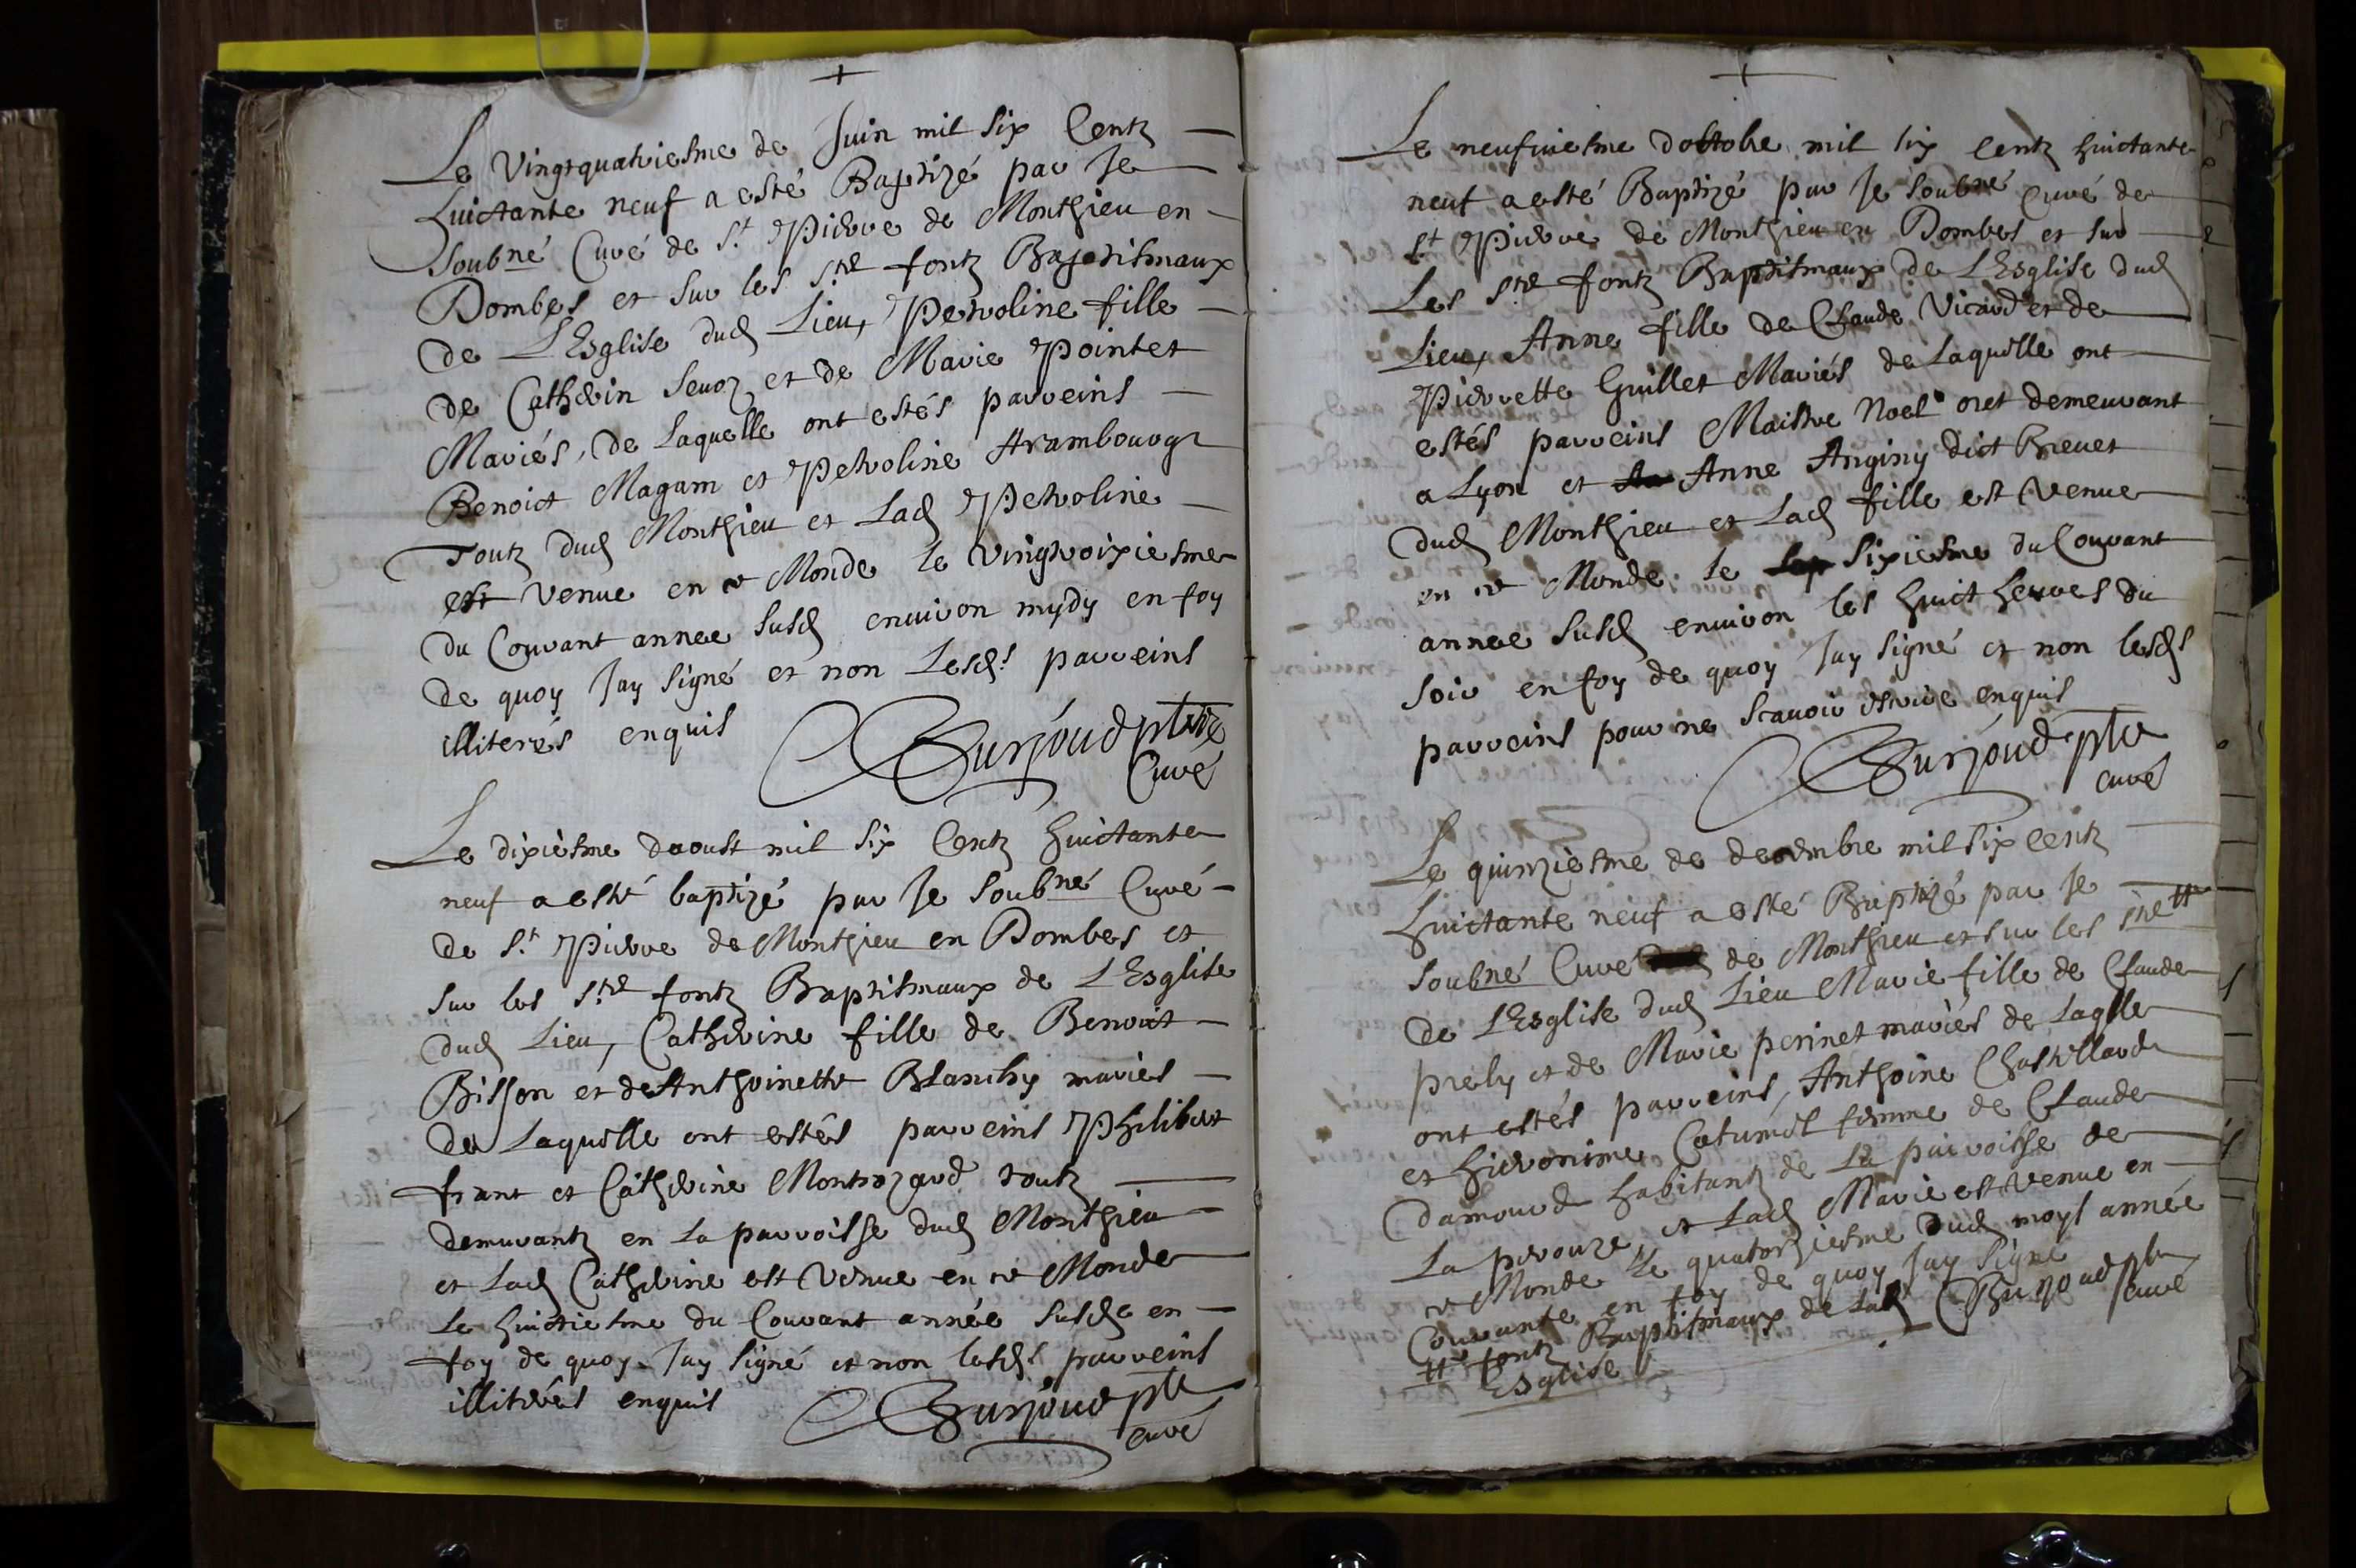 Le vingtquatriesme de Juin mil six Centz
huictante neuf a esté Baptizé par Je
Soubné Curé de St Pierre de Monthieu en
Dombes et sur les Stes fontz Baptismaux
de L'Esglise dud Lieu, Petroline fille
de Catherin Sevoz et de Marie Pointet
Mariés, de Laquelle ont estés parreins
Benoict Magam et Petroline Arambourgt
Toutz dud Monthieu et Lad Petroline
est venue en ce Monde le vingtroixiesme
du Courant annee susd environ mydy en foy
de quoy Jay signé et non Lesds parreins
illiterés enquis
Burjoud ptre
Curé
Le dixiesme daoust mil six Centz huictante
neuf a esté baptizé par Je Soubné Curé
de St Pierre de Monthieu en Dombes et
sur les Stes fontz Baptismaux de L'Esglise
dud Lieu, Catherine fille de Benoict
Bisson et de Anthoinette Blanchy mariés
de Laquelle ont estés parreins Philibert
frant et Catherine Montrozard toutz
demurantz en La parroisse dud Monthieu
et Lad Catherine est venue en ce Monde
Le huictiesme du Courant année susde en
foy de quoy Jay signé et non lesds parreins
illiterés enquis
Burjoud ptre
curé
Le neufviesme doctobre mil six centz huictante
neuf a esté Baptizé par Je soubné Curé de
St Pierre de Monthieu en Dombes et sur
Les Stes fontz Baptismaux de L'Esglise dud
Lieu, Anne fille de Claude Vicard et de
Pierrette Guillet Mariés de Laquelle ont
estés parreins Maistre Noel oret demeurant
a Lyon et Anne Anginy dict Brevet
dud Monthieu et Lad fille est venue
en ce Monde le sixiesme du Courant
annee susd environ les huict heures du
soir en foy de quoy Jay signé et non lesds
parreins pour ne scavoir escrire enquis
Burjoud ptre
curé
Le quinziesme de decembre mil six centz
huictante neuf a esté Baptizé par Je
soubné Curé de Monthieu et sur les Stes #
de L'Esglise dud Lieu Marie fille de Claude
prely et de Marie perinet mariés de Laqlle
ont estés parreins, Anthoine Chastillard
et hieronime Catumel femme de Claude
Damourd habitantz de La parroisse de
La perouze, et Lad Marie est venue en
ce Monde Le quatorziesme dud moys année
Courante en foy de quoy Jay signé
# fontz Baptismaux de Lad Burjoud ptre
Esglise curé